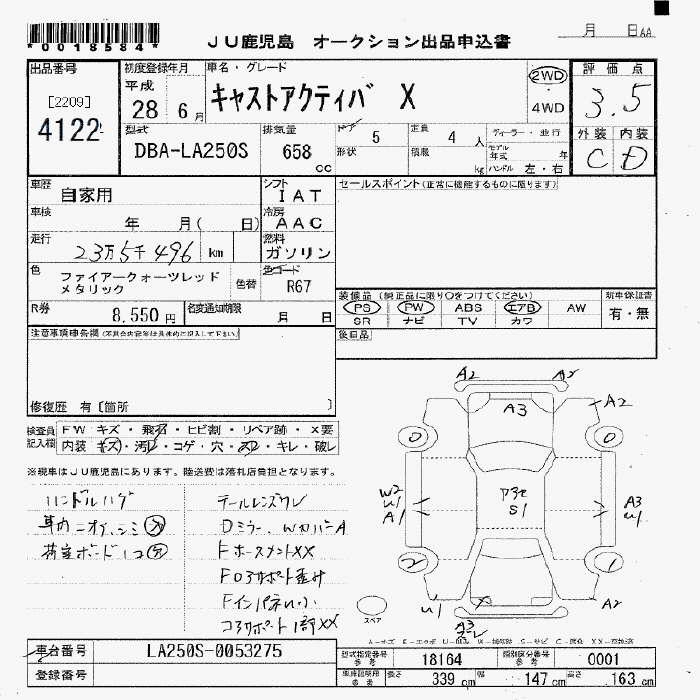 *0018584*
JU鹿児島 オークション出品申込書
月 日 AA
出品番号
[2209]
4122
初度登録年月
平成
28 6月
車名・グレード
キャストアクティバ X
2WD
・
4WD
評価点
3.5
型式
DBA-LA250S
排気量
658
cc
ドア 5
形状
定員 4 人
積載 kg
ディーラー・並行
モデル年式 年
ハンドル 左・右
外装 内装
C D
車歴
自家用
シフト
IAT
車検
年 月( 日)
冷房
AAC
走行
23万5千496 km
燃料
ガソリン
色
ファイアークォーツレッド
メタリック
色替
色コード
R67
R券
8,550 円
名変通知期限
月 日
セールスポイント(正常に機能するものに限ります)
装備品(純正品に限り○をつけてください)
新車保証書
PS PW ABS エアB AW
SR ナビ TV カワ
有・無
後日品
注意事項車務欄
修復歴 有〔箇所 〕
検査員
記入欄
FW キズ・飛石・ヒビ割・リペア跡・X要
内装 キズ・汚レ・コゲ・穴・スレ・キレ・破レ
※現車はJU鹿児島にあります。陸送費は落札店負担となります。
ハンドルハゲ
車内ニオイ、シミ
テールレンズワレ
Dミラー、WカバーA
A2 A2
A3
A2
0 0
W2
U1
A1
S1
A3
U1
2 1
U1
A2
A3
スペア
車台番号
LA250S-0053275
登録番号
型式指定番号
参考
18164
類別区分番号
参考
0001
車庫証明用
参考
長さ 339 cm 幅 147 cm 高さ 163 cm